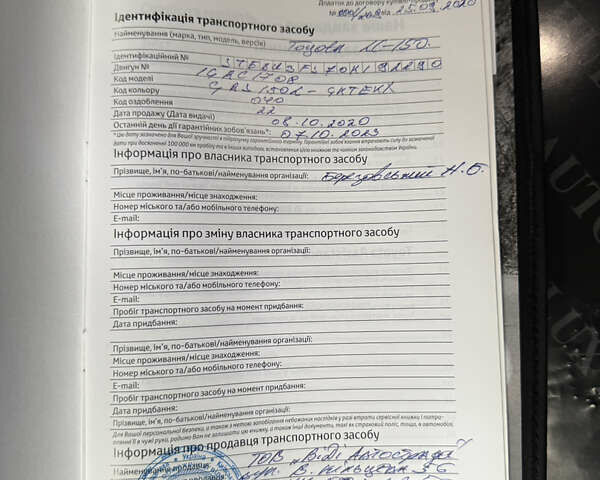 Додаток до договору купівлі-продажу
від 25.09.2020
Ідентифікація транспортного засобу
Найменування (марка, тип, модель, версія) Тойота LC-150.
Ідентифікаційний №
Двигун №
Код моделі
Код кольору 040
Код оздоблення 22
Дата продажу (Дата видачі) 08.10.2020
Останній день дії гарантійних зобов'язань*: 07.10.2023
* Цю дату зазначено для Вашої зручності в підрахунку гарантійного терміну. Гарантійні зобов'язання втрачають силу до зазначеної
дати при досягненні 100 000 км пробігу та в інших випадках, встановлених цією книжкою та чинним законодавством України.
Інформація про власника транспортного засобу
Прізвище, Ім'я, по-батькові/найменування організації: Березовський Н. Б.
Місце проживання/місце знаходження:
Номер міського та/або мобільного телефону:
E-mail:
Інформація про зміну власника транспортного засобу
Прізвище, Ім'я, по-батькові/найменування організації:
Місце проживання/місце знаходження:
Номер міського та/або мобільного телефону:
E-mail:
Пробіг транспортного засобу на момент придбання:
Дата придбання:
Прізвище, Ім'я, по-батькові/найменування організації:
Місце проживання/місце знаходження:
Номер міського та/або мобільного телефону:
E-mail:
Пробіг транспортного засобу на момент придбання:
Дата придбання:
Прізвище, Ім'я, по-батькові/найменування організації:
Для Вашої персональної безпеки, а також з метою запобігання небажаних наслідків у разі втрати сервісної книжки і потрап-
ляння її в чужі руки, радимо Вам не залишати цю книжку, а також інші документи, такі як страховий поліс, тощо, в автомобілі.
Інформація про продавця транспортного засобу
Найменування ТОВ "ВіДі Автострада"
Україна